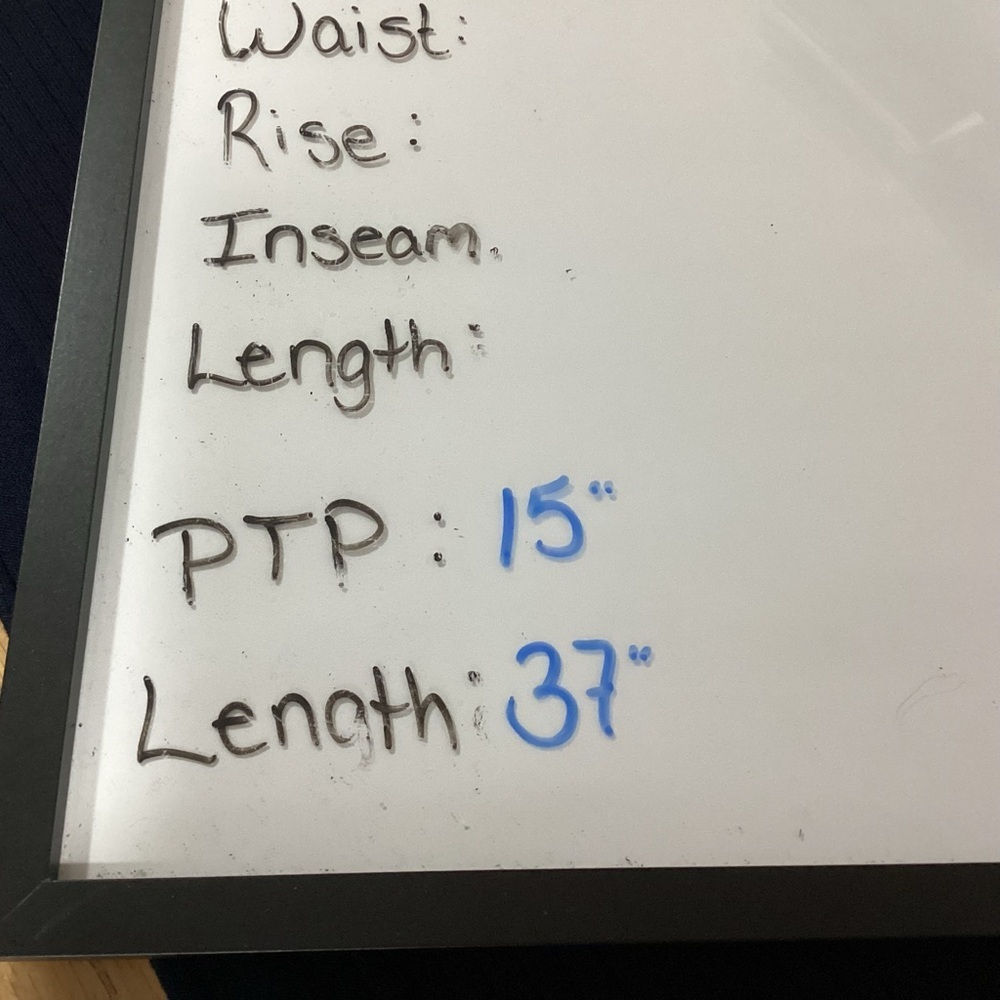 Waist:
Rise:
Inseam:
Length:
PTP: 15"
Length: 37"